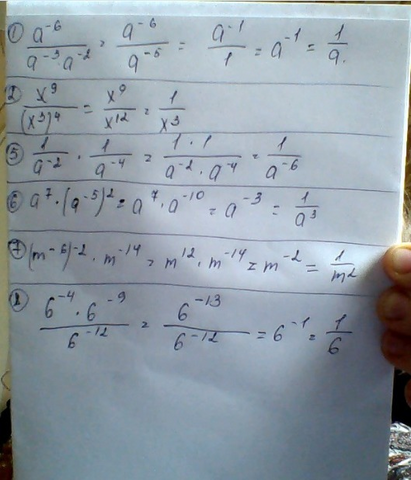 ① a⁻⁶/(a⁻³·a⁻²) = a⁻⁶/a⁻⁵ = a⁻¹/1 = a⁻¹ = 1/a.
② x⁹/(x³)⁴ = x⁹/x¹² = 1/x³
⑤ 1/a⁻² · 1/a⁻⁴ = (1·1)/(a⁻²·a⁻⁴) = 1/a⁻⁶
⑥ a⁷·(a⁻⁵)² = a⁷·a⁻¹⁰ = a⁻³ = 1/a³
⑦ (m⁻⁶)⁻²·m⁻¹⁴ = m¹²·m⁻¹⁴ = m⁻² = 1/m²
⑧ (6⁻⁴·6⁻⁹)/6⁻¹² = 6⁻¹³/6⁻¹² = 6⁻¹ = 1/6